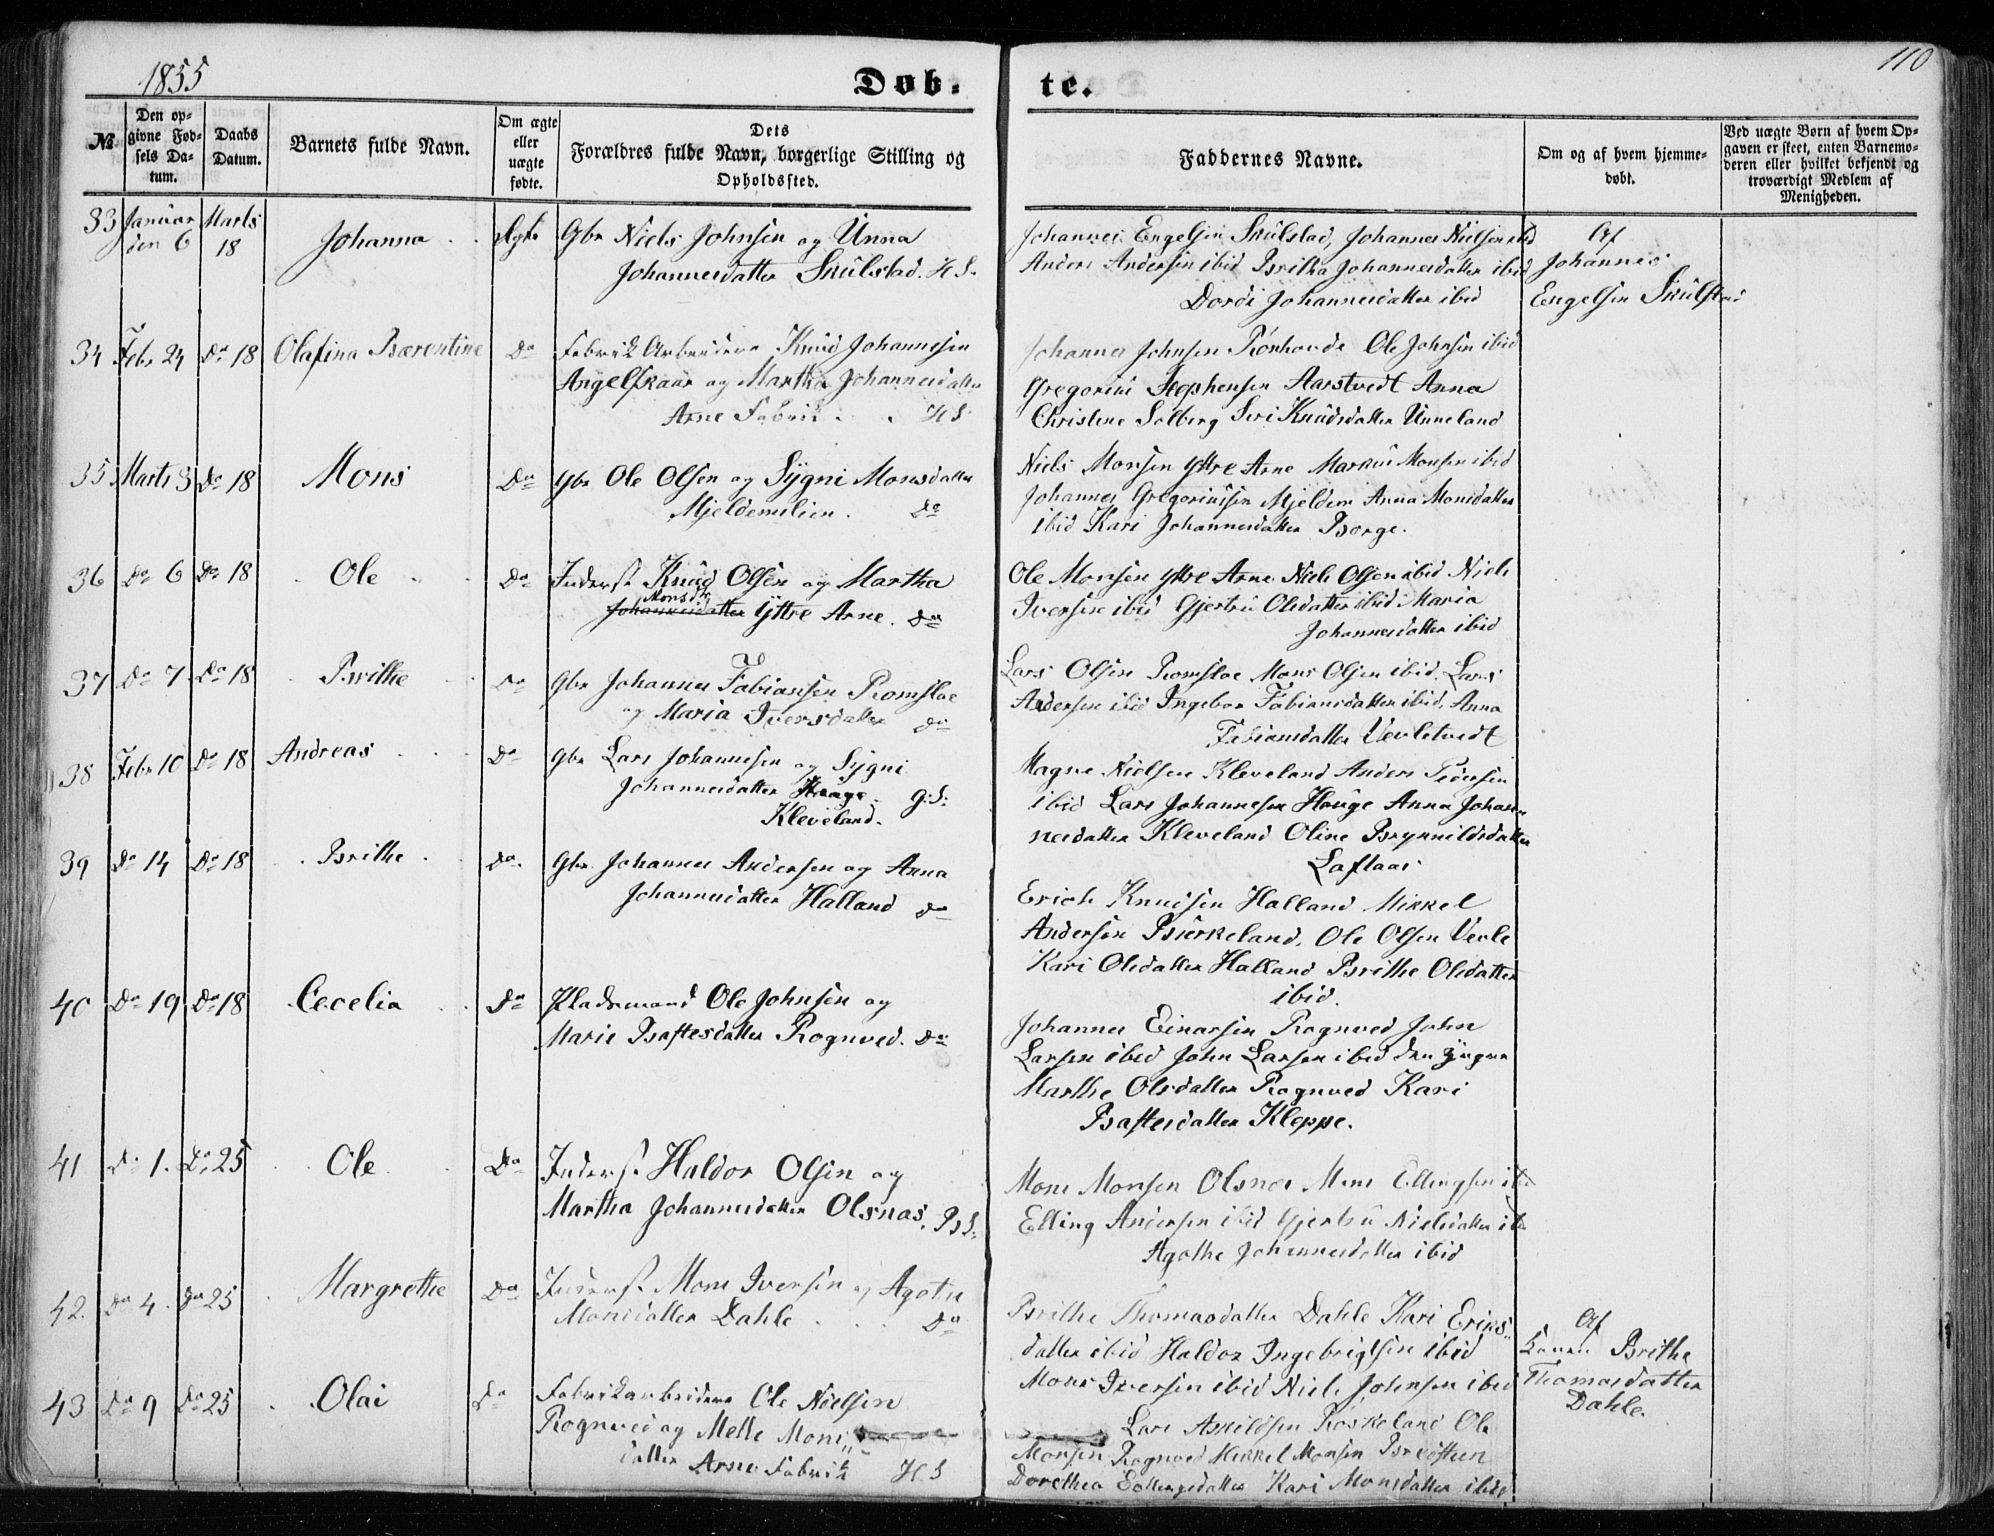 1855
110
Døb-
te.
№
Den op-
givne Fød-
sels Da-
tum.
Daabs
Datum.
Barnets fulde Navn.
Om ægte
eller
uægte
fødte.
Dets
Forældres fulde Navn, borgerlige Stilling og
Opholdssted.
Faddernes Navne.
Om og af hvem hjemme-
døbt.
Ved uægte Børn af hvem Op-
gaven er skeet, enten Barnemo-
deren eller hvilket bekjendt og
troværdigt Medlem af
Menigheden.
33 Januar Marts
den 6 18
Johanna
Ægte
Gbr Niels Johnsen og Unna
Johannesdatter Skulstad. H S.
Johannes Engelsen Skulstad, Johannes Nielsen ibid
Anders Andersen ibid Britha Johannesdatter ibid
Dordi Johannesdatter ibid
Af
Johannes
Engelsen Skulstad
34 Febr 24 Do 18 Olafina Bærentine Do
Fabrik Arbeider Knud Johannesen
Angelskaar og Martha Johannesdatter
Arne Fabrik H S
Johannes Johnsen Rønhovde Ole Johnsen ibid
Gregorius Stephensen Aarstvedt Anna
Christine Solberg Siri Knudsdatter Unneland
35 Marts 3 Do 18 Mons Do
Gbr Ole Olsen og Sygni Monsdatter
Mjeldemilien. Do
Niels Monsen Yttre Arne Markus Monsen ibid
Johannes Gregoriussen Mjeldem Anna Monsdatter
ibid Kari Johannesdatter Borge.
36 Do 6 Do 18 Ole Do
Inderst Knud Olsen og Martha
Monsdr
Johannesdatter Yttre Arne. Do
Ole Monsen Yttre Arne Niels Olsen ibid Niels
Iversen ibid Gjertru Olsdatter ibid Maria
Johannesdatter ibid
37 Do 7 Do 18 Brithe Do
Gbr Johannes Fabiansen Romsloe
og Maria Iversdatter Do
Lars Olsen Romsloe Mons Olsen ibid. Lars
Andersen ibid Ingebor Fabiansdatter ibid. Anna
Fabiansdatter Vevletvedt
38 Febr 10 Do 18 Andreas Do
Gbr Lars Johannesen og Sygni
Johannesdatter Hauge. G:S:
Kleveland.
Magne Nielsen Kleveland Anders Pedersen
ibid Lars Johannesen Hauge Anna Johan-
nesdatter Kleveland Oline Brynnildsdatter
Laftaas
39 Do 14 Do 18 Brithe Do.
Gbr. Johannes Andersen og Anna
Johannesdatter Halland Do
Erich Knudsen Halland Mikkel
Andersen Birkeland. Ole Olsen Vevle
Kari Olsdatter Halland Brithe Olsdatter
ibid.
40 Do 19 Do 18 Cecelia Do
Pladsmand Ole Johnsen og
Marie Baftesdatter Rognved. Do
Johannes Einarsen Rognved John
Larsen ibid John Larsen ibid den yngre
Marthe Olsdatter Rognved Kari
Baftesdatter Kleppe.
41 Do 1. Do 25 Ole Do
Inderst Haldor Olsen og
Martha Johannesdatter Olsnas. B S.
Mons Monsen Olsnes Mons Ellingsen ibid
Elling Andersen ibid Gjertru Nielsdatter ib
Agathe Johannesdatter ibid
42. Do 4. Do 25 Margrethe Do
Inderst Mons Iversen og Agotn
Monsdatter Dahle Do
Brithe Thomasdatter Dahle Kari Eriks-
datter ibid Haldor Ingebrigtsen ibid
Mons Iversen ibid Niels Johnsen ibid
Af
Konen Brithe
Thomasdatter
Dahle.
43 Do 9 Do 25 Olai Do
Fabrikarbeider Ole Nielsen
Rognved og Mette Mons-
datter Arne Fabrik H S
Lars Askildsen Røskeland Ole
Monsen Rognved Mikkel Monsen Bredsteen
Dorethea Kari Monsdatter ibid